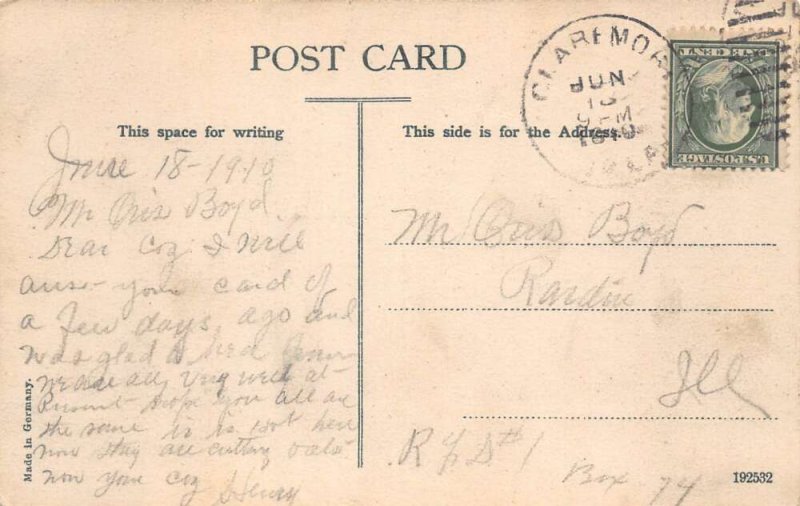 POST CARD
This space for writing
This side is for the Address.
CLAREMORE
JUN
PM
1910
OKLA
ONE CENT
U.S. POSTAGE
June 18-1910
Mr Oris Boyd
Dear Coz I will
ans- your card of
a few days ago and
was glad to
we are all very well at
Present hope you all are
the same it is hot here
now they are cutting oats
now your coz
Henry
Mr Oris Boyd
Rardin
Ill
R F D #1
Box 74
Made in Germany.
192532